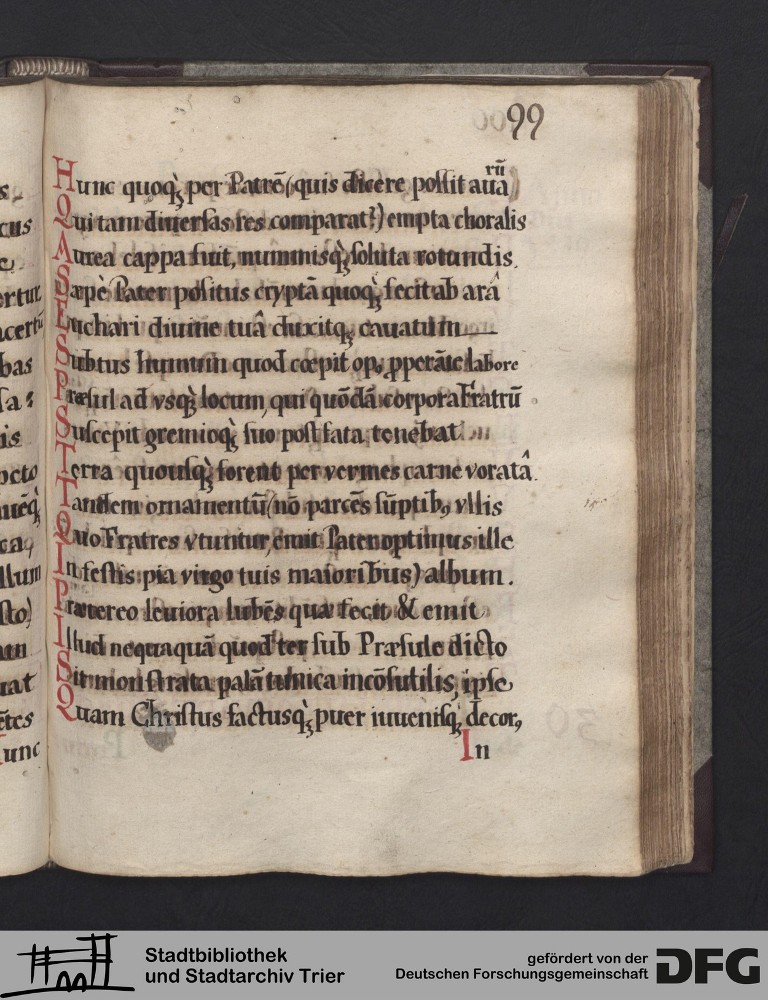 99
Hunc quoq; per Patrē (quis dicere possit auārū)
Qui tam diuersas res comparat?) empta choralis
Aurea cappa fuit, nummisq; soluta rotundis.
Sæpè Pater positus cryptā quoq; fecit ab arâ
Euchari diuine tuâ duxitq; cauatum
Subtus humum quod cœpit op, pperāte labore
Præsul ad vsq; locum, qui quōdā corpora Fratrū
Suscepit gremioq; suo post fata tenebat
Terra quousq; forent per vermes carne voratâ.
Tandem ornamentū (nō parcēs sūptib, vllis
Quo Fratres vtuntur, emit Pater optimus ille
In festis pia virgo tuis maioribus) album.
Prætereo leuiora lubēs quæ fecit & emit
Illud nequaquā quod ter sub Præsule dicto
Sit monstrata palā tunica incōsutilis, ipse
Quam Christus factusq; puer iuuenisq; decor,
In
Stadtbibliothek
und Stadtarchiv Trier
gefördert von der
Deutschen Forschungsgemeinschaft
DFG